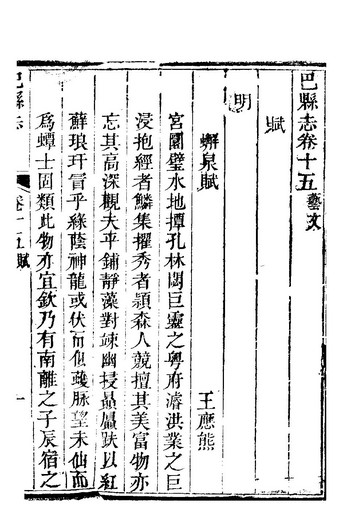 巴縣志卷十五 藝文
賦
明
蠏泉賦 王應熊
宮圜璧水地撢孔林閟巨靈之粤府濬洪業之巨
浸抱經者鱗集擢秀者頴森人競擅其美富物亦
忘其高深觀夫平鋪靜藻對竦幽授贔屭趺以紅
蘚琅玕冒乎綠蔭神龍或伏而似蟂脉望未仙而
為蟫士固類此物亦宜欽乃有南離之子辰宿之
巴縣志 卷十五賦 一